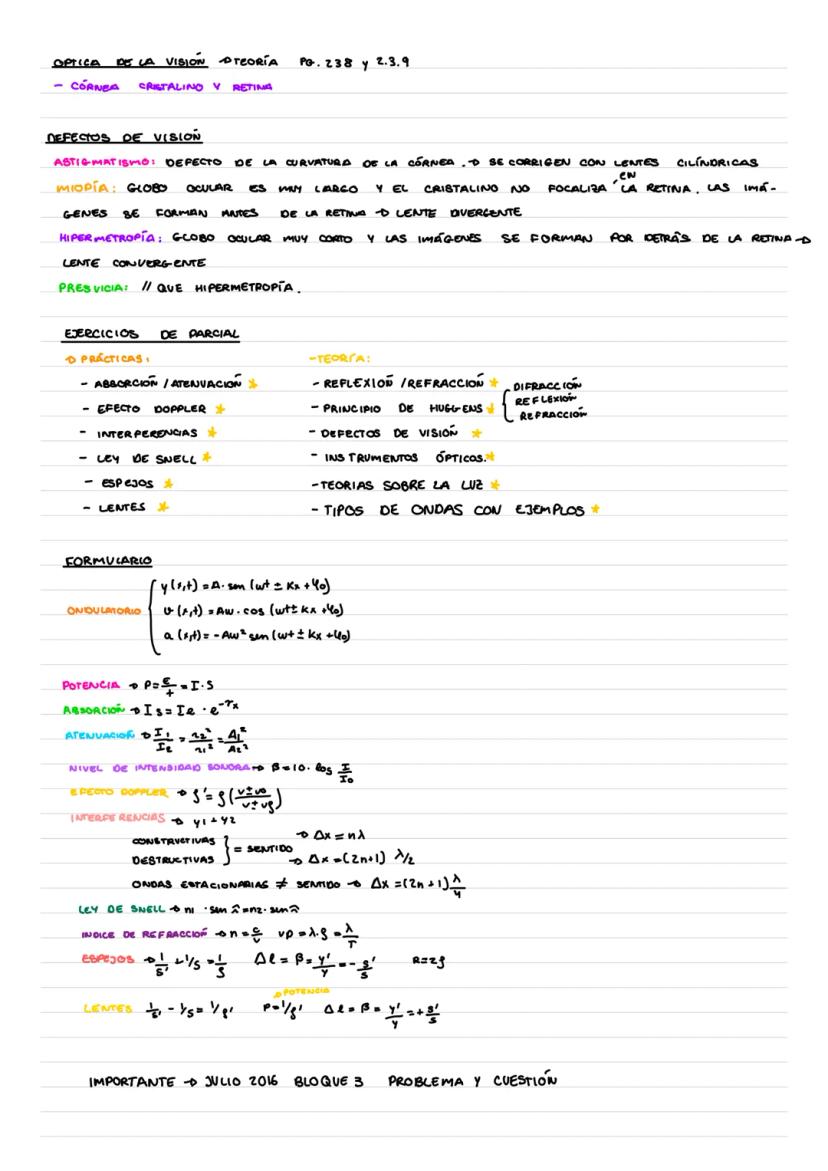 OPTICA DE LA VISIÓN → TEORÍA PG. 238 y 2.3.9
- CÓRNEA CRISTALINO Y RETINA
DEFECTOS DE VISIÓN
ASTIGMATISMO: DEFECTO DE LA CURVATURA DE LA CÓRNEA. → SE CORRIGEN CON LENTES CILÍNDRICAS
MIOPÍA: GLOBO OCULAR ES MUY LARGO Y EL CRISTALINO NO FOCALIZA EN LA RETINA. LAS IMÁ-
GENES SE FORMAN ANTES DE LA RETINA → LENTE DIVERGENTE
HIPERMETROPÍA: GLOBO OCULAR MUY CORTO Y LAS IMÁGENES SE FORMAN POR DETRÁS DE LA RETINA →
LENTE CONVERGENTE
PRESVICIA: // QUE HIPERMETROPÍA.
EJERCICIOS DE PARCIAL
→ PRÁCTICAS:
- ABSORCIÓN / ATENUACIÓN ★
- EFECTO DOPPLER ★
- INTERFERENCIAS ★
- LEY DE SNELL ★
- ESPEJOS ★
- LENTES ★
- TEORÍA:
- REFLEXIÓN / REFRACCIÓN ★
- PRINCIPIO DE HUGGENS ★ { DIFRACCIÓN
REFLEXIÓN
REFRACCIÓN
- DEFECTOS DE VISIÓN ★
- INSTRUMENTOS ÓPTICOS. ★
- TEORIAS SOBRE LA LUZ ★
- TIPOS DE ONDAS CON EJEMPLOS ★
FORMULARIO
ONDULATORIO { y (x,t) = A · sen (wt ± Kx + φ0)
v (x,t) = Aw · cos (wt ± kx + φ0)
a (x,t) = - Aw² sen (wt ± kx + φ0)
POTENCIA → P = E/t = I · S
ABSORCIÓN → Is = Ie · e^-γx
ATENUACIÓN → I1/I2 = r2²/r1² = A1²/A2²
NIVEL DE INTENSIDAD SONORA → β = 10 · log I/I0
EFECTO DOPPLER → f' = f (v ± vo / v ± vf)
INTERFERENCIAS → y1 + y2
CONSTRUCTIVAS } = SENTIDO → Δx = nλ
DESTRUCTIVAS → Δx = (2n+1) λ/2
ONDAS ESTACIONARIAS ≠ SENTIDO → Δx = (2n+1) λ/4
LEY DE SNELL → n1 · sen î = n2 · sen r̂
INDICE DE REFRACCIÓN → n = c/v vp = λ · f = λ/T
ESPEJOS → 1/s' + 1/s = 1/f Δl = β = y'/y = - s'/s R = 2f
→ POTENCIA
LENTES 1/s' - 1/s = 1/f' P = 1/f' Δl = β = y'/y = + s'/s
IMPORTANTE → JULIO 2016 BLOQUE 3 PROBLEMA Y CUESTIÓN